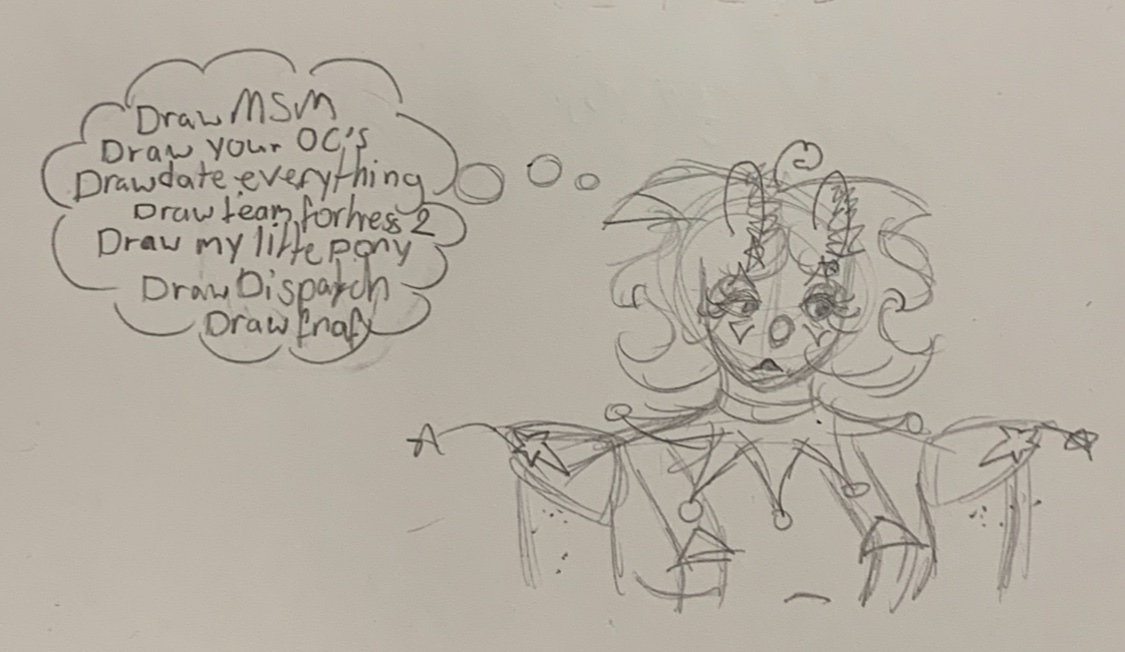 Draw MSM
Draw your OC's
Draw date everything
Draw team fortress 2
Draw my litte pony
Draw Dispatch
Draw fnaf